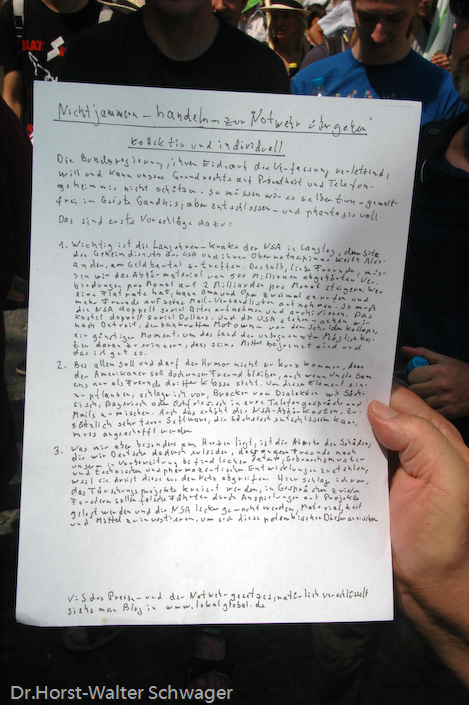 "Nicht jammern - handeln - zur Notwehr übergehen"
kollektiv und individuell
Die Bundesregierung, ihren Eid auf die Verfassung verletzend,
will und kann unsere Grundrechte auf Privatheit und Telefon-
geheimnis nicht schützen. So müssen wir es selber tun - gewalt-
frei, im Geiste Gandhis, aber entschlossen - und phantasievoll.
Das sind erste Vorschläge dazu:
1. Wichtig ist die Langohren-Krake der NSA in Langley, dem Sitz
den Geheimdienste der USA und ihren Oberbefehlshaber Keith Alex-
ander, am Geldbeutel zu treffen. Deshalb, liebe Freunde, müs-
sen wir das Abhörmaterial von 500 Millionen abgehörten Ver-
bindungen pro Monat auf 2 Milliarden pro Monat steigern. Wer
eine Flatrate hat, kann Oma und Opa zweimal anrufen und
mehr Freunde auf seine Mail-Versandlisten aufnehmen. So muß
die NSA doppelt soviel Bites aufnehmen und archivieren. Das
kostet doppelt soviel Dollars. Und die USA stehen nach
Detroit, der bankrotten Motown - vor dem Schuldenkollaps,
ein günstiger Moment, um das Land der unbegrenzten Möglichkei-
ten daran zu erinnern, dass seine Mittel begrenzt sind und
das ist gut so.
2. Bei allem soll und darf der Humor nicht zu kurz kommen, denn
der Amerikaner soll doch unser Freund bleiben, auch wenn Uncle Sam
uns nur als Freunde dritter Klasse sieht. Um dieses Element ein-
zupflanzen, schlage ich vor, Brocken von Dialekten wie Säch-
sisch, Bayerisch oder Ostfriesisch in eure Telefongespräche und
Mails zu mischen. Auch das erhöht die NSA-Abhörkosten. Zu-
sätzlich sehr teure Software, die Sächsisch entschlüsseln kann,
muss angeschafft werden.
3. Was mir aber besonders am Herzen liegt, ist die Abwehr der Schäden,
die wir Deutsche dadurch erleiden, dass
unsere, in Vorbereitung befindlichen Patent, Gebrauchsmuster
und technischen und pharmazeutischen Entwicklungen
weil sie dreist diese aus dem Netz abgreifen. Hier schlag ich vor,
das Täuschungsprojekte kreiert werden, in Gesprächen zwischen
Forschern sollen falsche Fährten durch Anspielungen auf Projekte
gelegt werden und die NSA lecker gemacht werden, Material, Zeit
und Mittel zu investieren, um sich diese
V.i.S. des Presse- und der Notwehrgesetzes, natürlich verschlüsselt
siehe mein Blog in www.lokalglobal.de
Dr.Horst-Walter Schwager